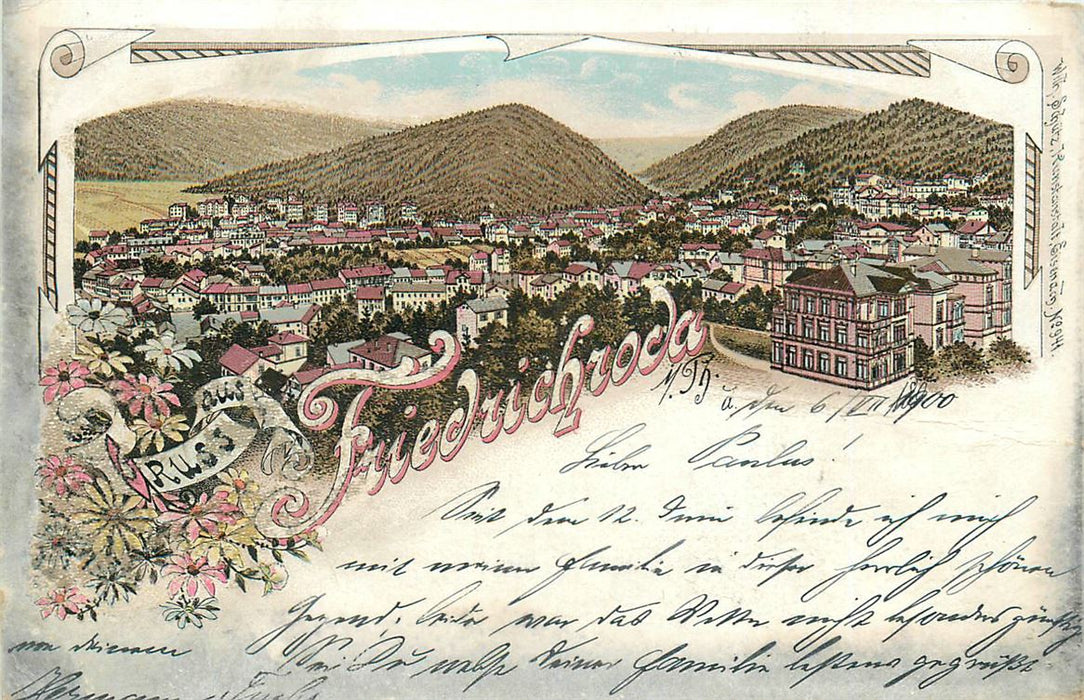 Gruss aus
Friedrichroda
i/Th.
d. den 6/VII 1900
Lieber Paulus!
Seit dem 12. Juni befinde ich mich
mit meiner Familie in dieser herrlich schönen
Gegend, leider war das Wetter nicht besonders günstig
Sei Du nebst Deiner Familie bestens gegrüßt
von deinem
Hermann
No 944.